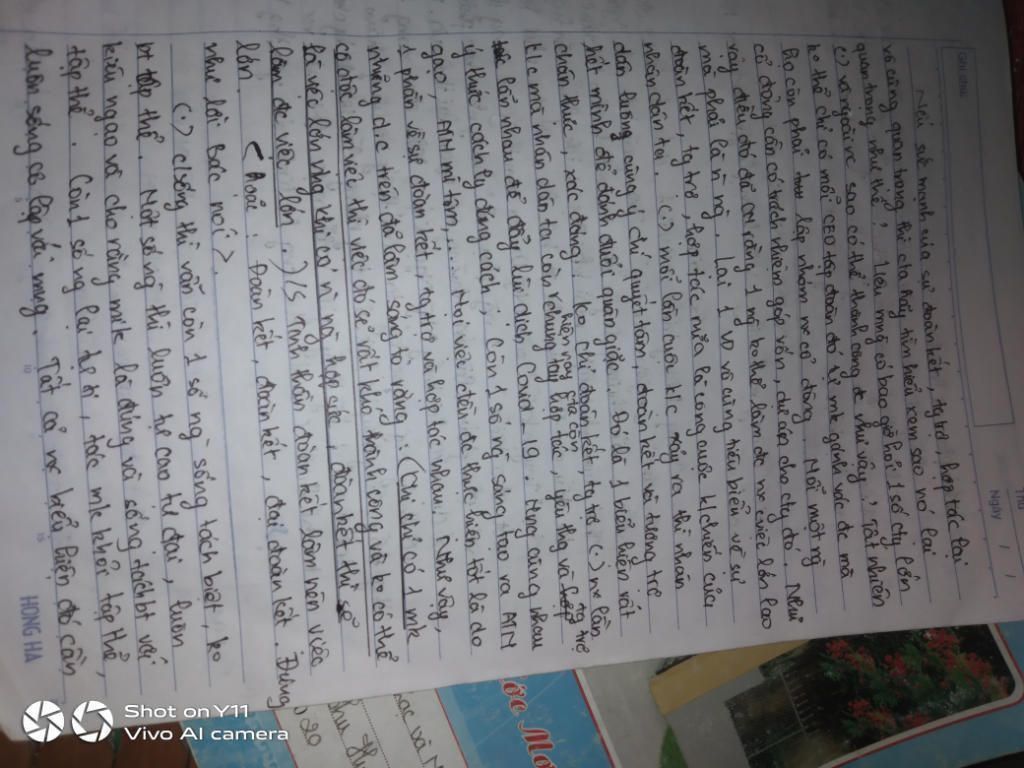 GHI CHÚ
Thứ
Ngày / /
Nói về mạnh của sự đoàn kết, tg trợ, hợp tác lại
vô cùng quan trọng thì cta hãy tìm hiểu xem sao nó lại
quan trọng như thế, 1 liều mng có bao giờ hỏi 1 số cty lớn
(.) và ngoài nc sao có thể thành công đc như vậy, Tất nhiên
ko thể chỉ có mỗi CEO tập đoàn đó tự mk gánh vác đc mà
họ còn phải lập nhóm nc cổ đông. Mỗi một ng
cổ đông cần có trách nhiệm góp vốn, dự án cho cty đó. Như
vậy điều đó đã cm rằng 1 ng ko thể làm đc nc việc lớn lao
mà phải là n ng. Lại 1 VD vô cùng tiêu biểu về sự
đoàn kết, tg trợ, hợp tác nữa là công cuộc k/chiến của
nhân dân ta. (.) mỗi lần cuộc k/c xảy ra thì nhân
dân luông cùng ý chí quyết tâm, đoàn kết và tương trợ
hết mình để đánh đuổi quân giặc. Đó là 1 biểu hiện rất
chân thực, xác đáng. Ko chỉ đoàn kết, tg trợ (.) nc lần
k/c mà nhân dân ta còn hiện nay còn hợp tác, yêu thg và tg trợ
lẫn nhau để đẩy lùi dịch Covid-19. Nng cùng nhau
ý thức cách ly đúng cách, Còn 1 số ng sáng tạo ra ATM
gạo, ATM mì tôm,... Mọi việc đều đc thực hiện tốt là do
1 phần về sự đoàn kết, tg trợ và hợp tác nhau. Như vậy,
những d/c trên đã làm sáng tỏ rằng: (Chỉ chỉ có 1 mk
cá độc làm việc thì việc đó sẽ rất khó thành công và k có thể
là việc lớn nhg khi có n ng hợp sức, đoàn kết thì sẽ
làm đc việc lớn.) /s Tinh thần đoàn kết làm nên việc
lớn. < Aoốc. Đoàn kết, đoàn kết, đại đoàn kết. Đúng
như lời Bác nói >.
(.) c/sống thì vẫn còn 1 số ng sống tách biệt, ko
tập thể. Một số ng thì luôn tự cao tự đại, luôn
kiêu ngạo và cho rằng mk là đúng và sống tách bt với
tập thể. Còn 1 số ng lại tự ti, tách mk khỏi tập thể,
luôn sống cô lập với mng. Tất cả nc biểu hiện đó cần
HONG HA
Shot on Y11
Vivo AI camera